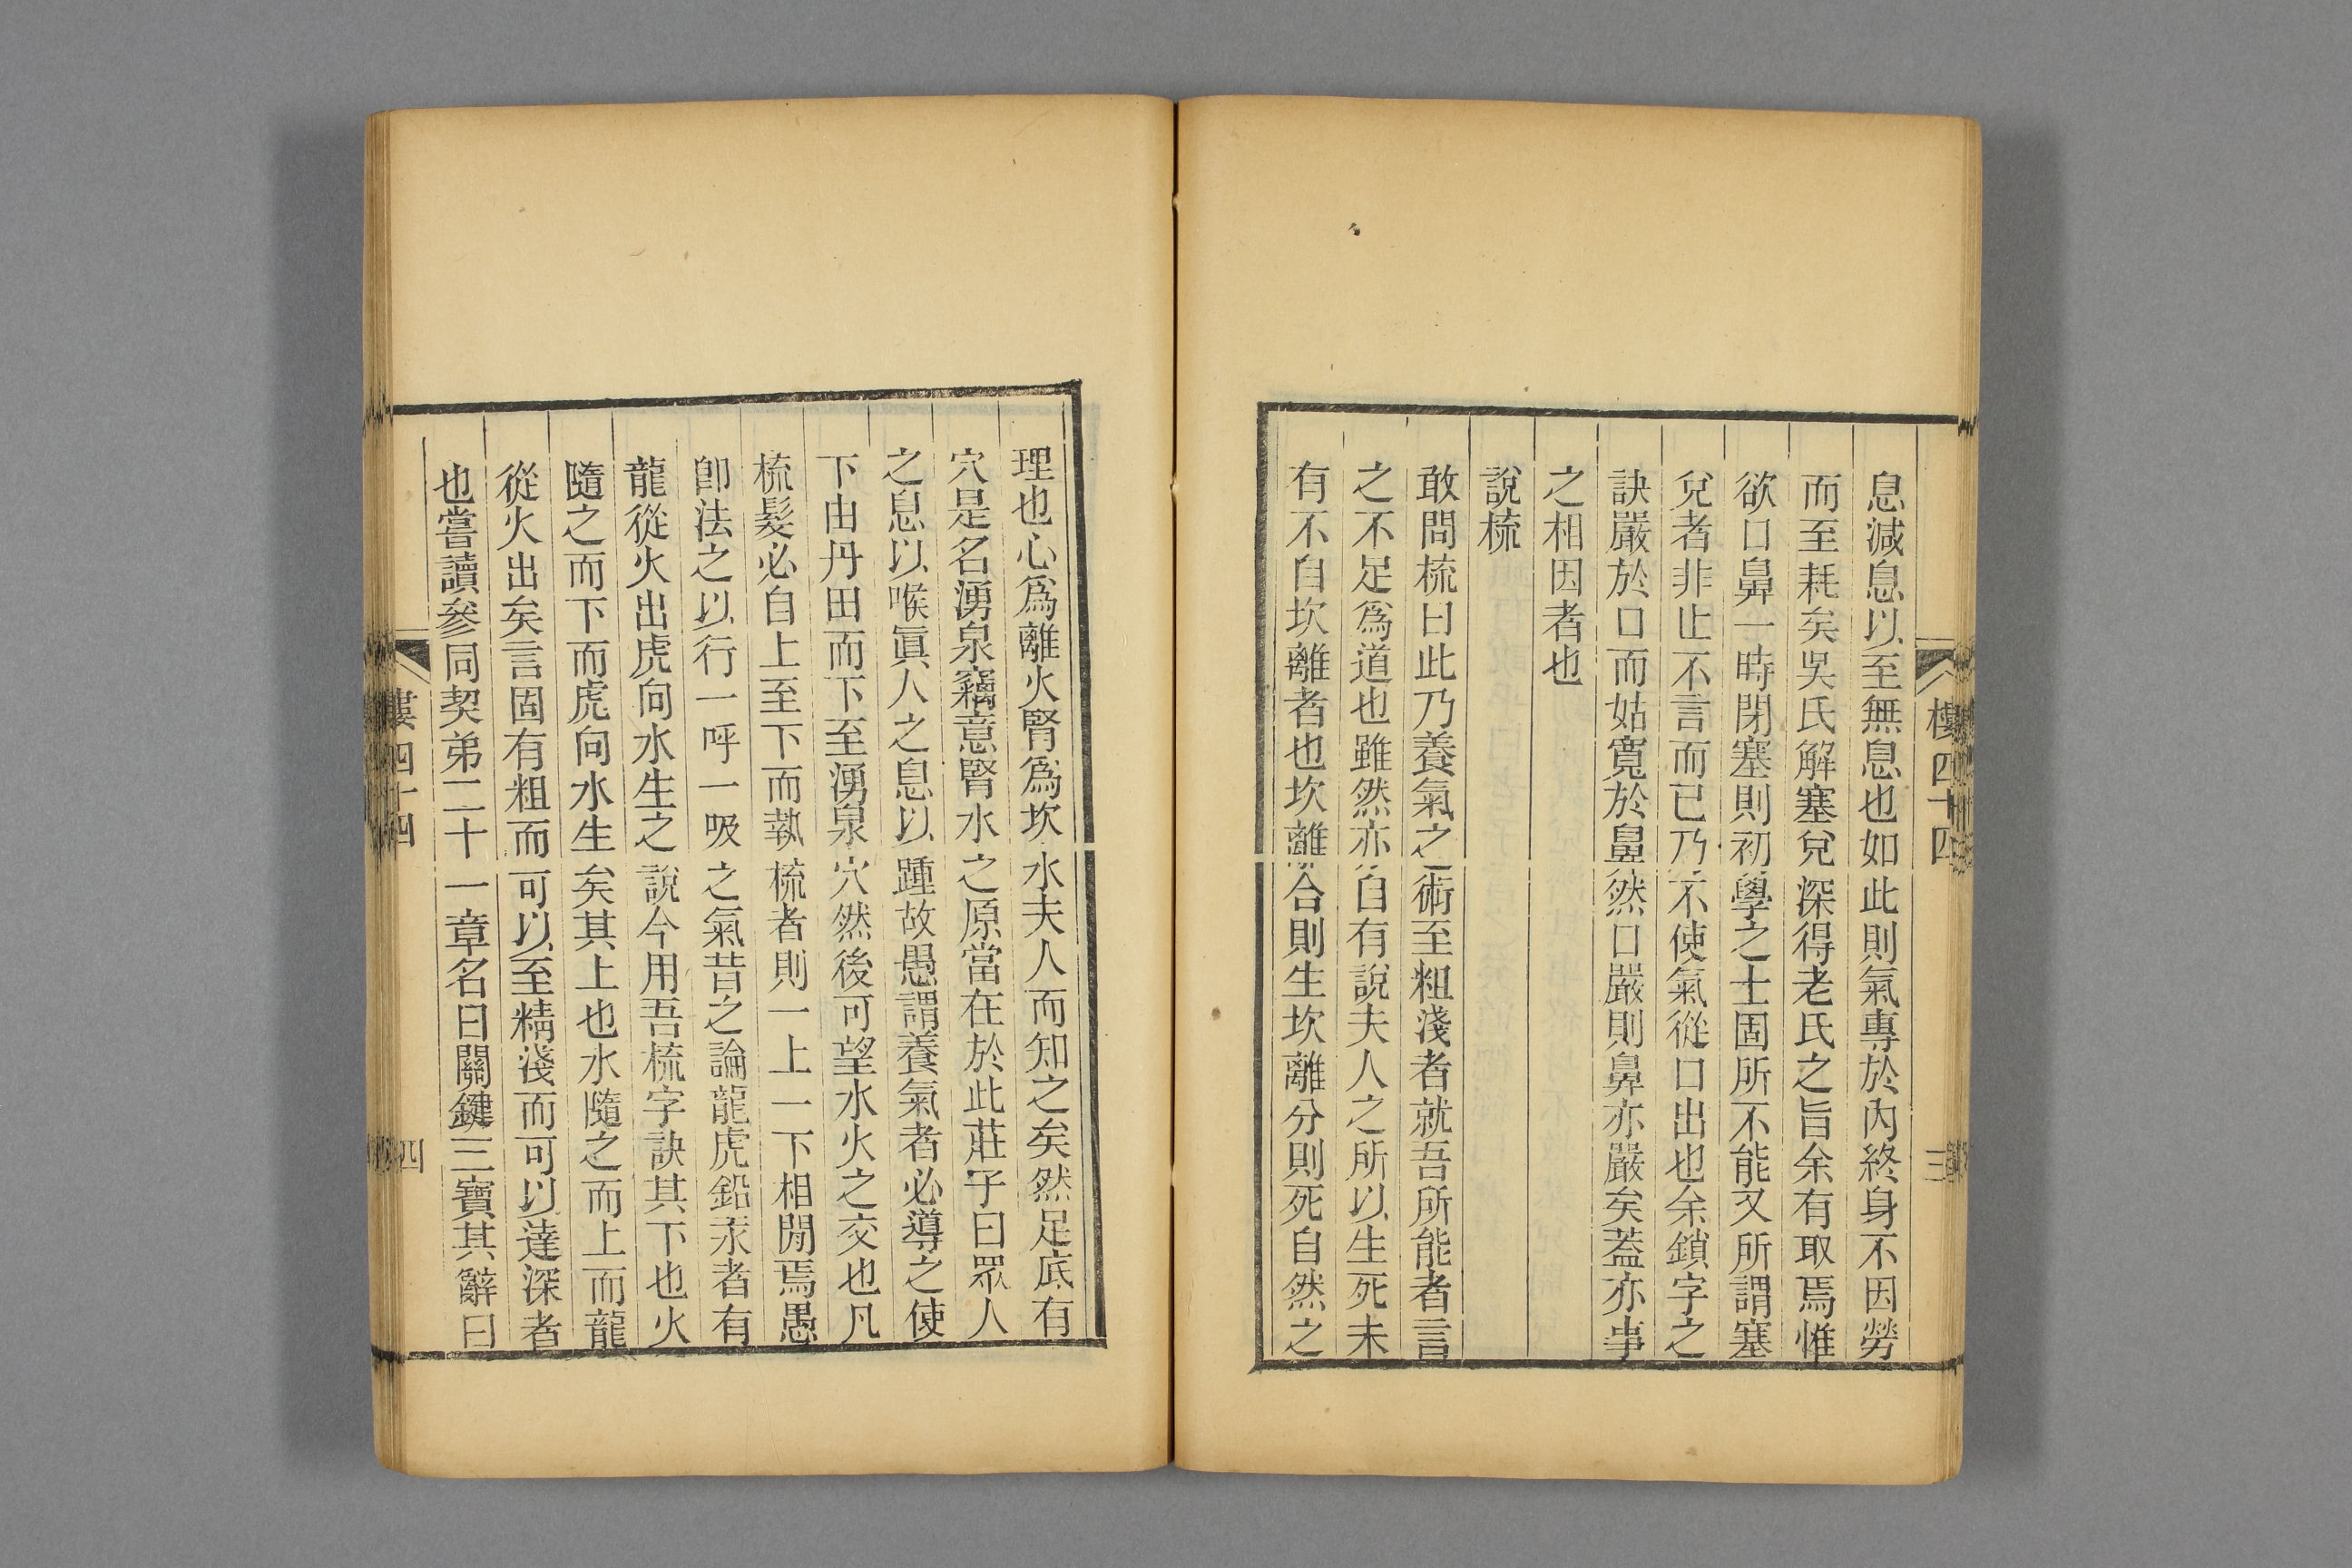 息減息以至無息也如此則氣專於內終身不因勞
而至耗矣吳氏解塞兌深得老氏之旨余有取焉惟
欲口鼻一時閉塞則初學之士固所不能又所謂塞
兌者非止不言而已乃不使氣從口出也余鎖字之
訣嚴於口而姑寬於鼻然口嚴則鼻亦嚴矣蓋亦事
之相因者也
說梳
敢問梳曰此乃養氣之術至粗淺者就吾所能者言
之不足爲道也雖然亦自有說夫人之所以生死未
有不自坎離者也坎離合則生坎離分則死自然之
樓四十四
三
理也心爲離火腎爲坎水夫人而知之矣然足底有
穴是名湧泉竊意腎水之原當在於此莊子曰眾人
之息以喉眞人之息以踵故愚謂養氣者必導之使
下由丹田而下至湧泉穴然後可望水火之交也凡
梳髮必自上至下而執梳者則一上一下相閒焉愚
卽法之以行一呼一吸之氣昔之論龍虎鉛汞者有
龍從火出虎向水生之說今用吾梳字訣其下也火
隨之而下而虎向水生矣其上也水隨之而上而龍
從火出矣言固有粗而可以至精淺而可以達深者
也嘗讀參同契弟二十一章名曰關鍵三寶其辭曰
樓四十四
四